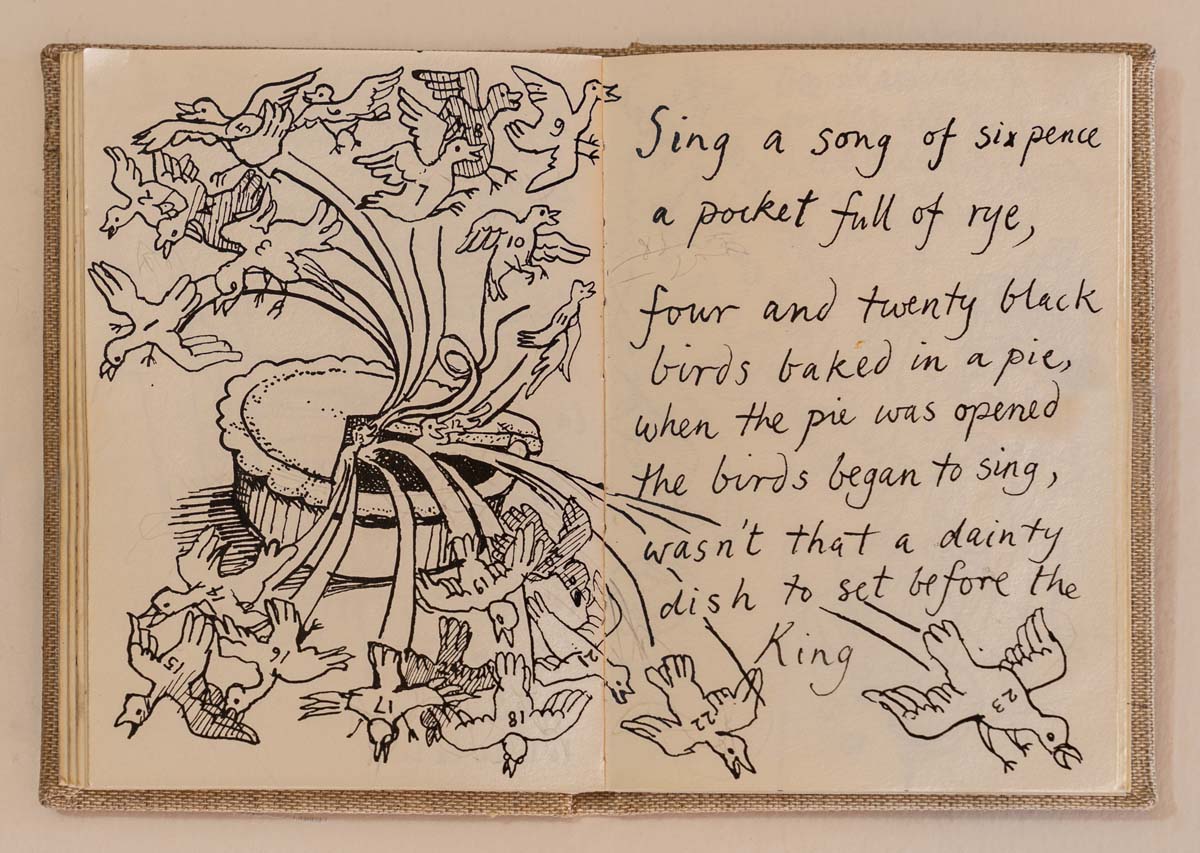 Sing a song of sixpence
a pocket full of rye,
four and twenty black
birds baked in a pie,
when the pie was opened
the birds began to sing,
wasn't that a dainty
dish to set before the
King
5
8
9
10
1
15
16
17
18
19
21
22
23